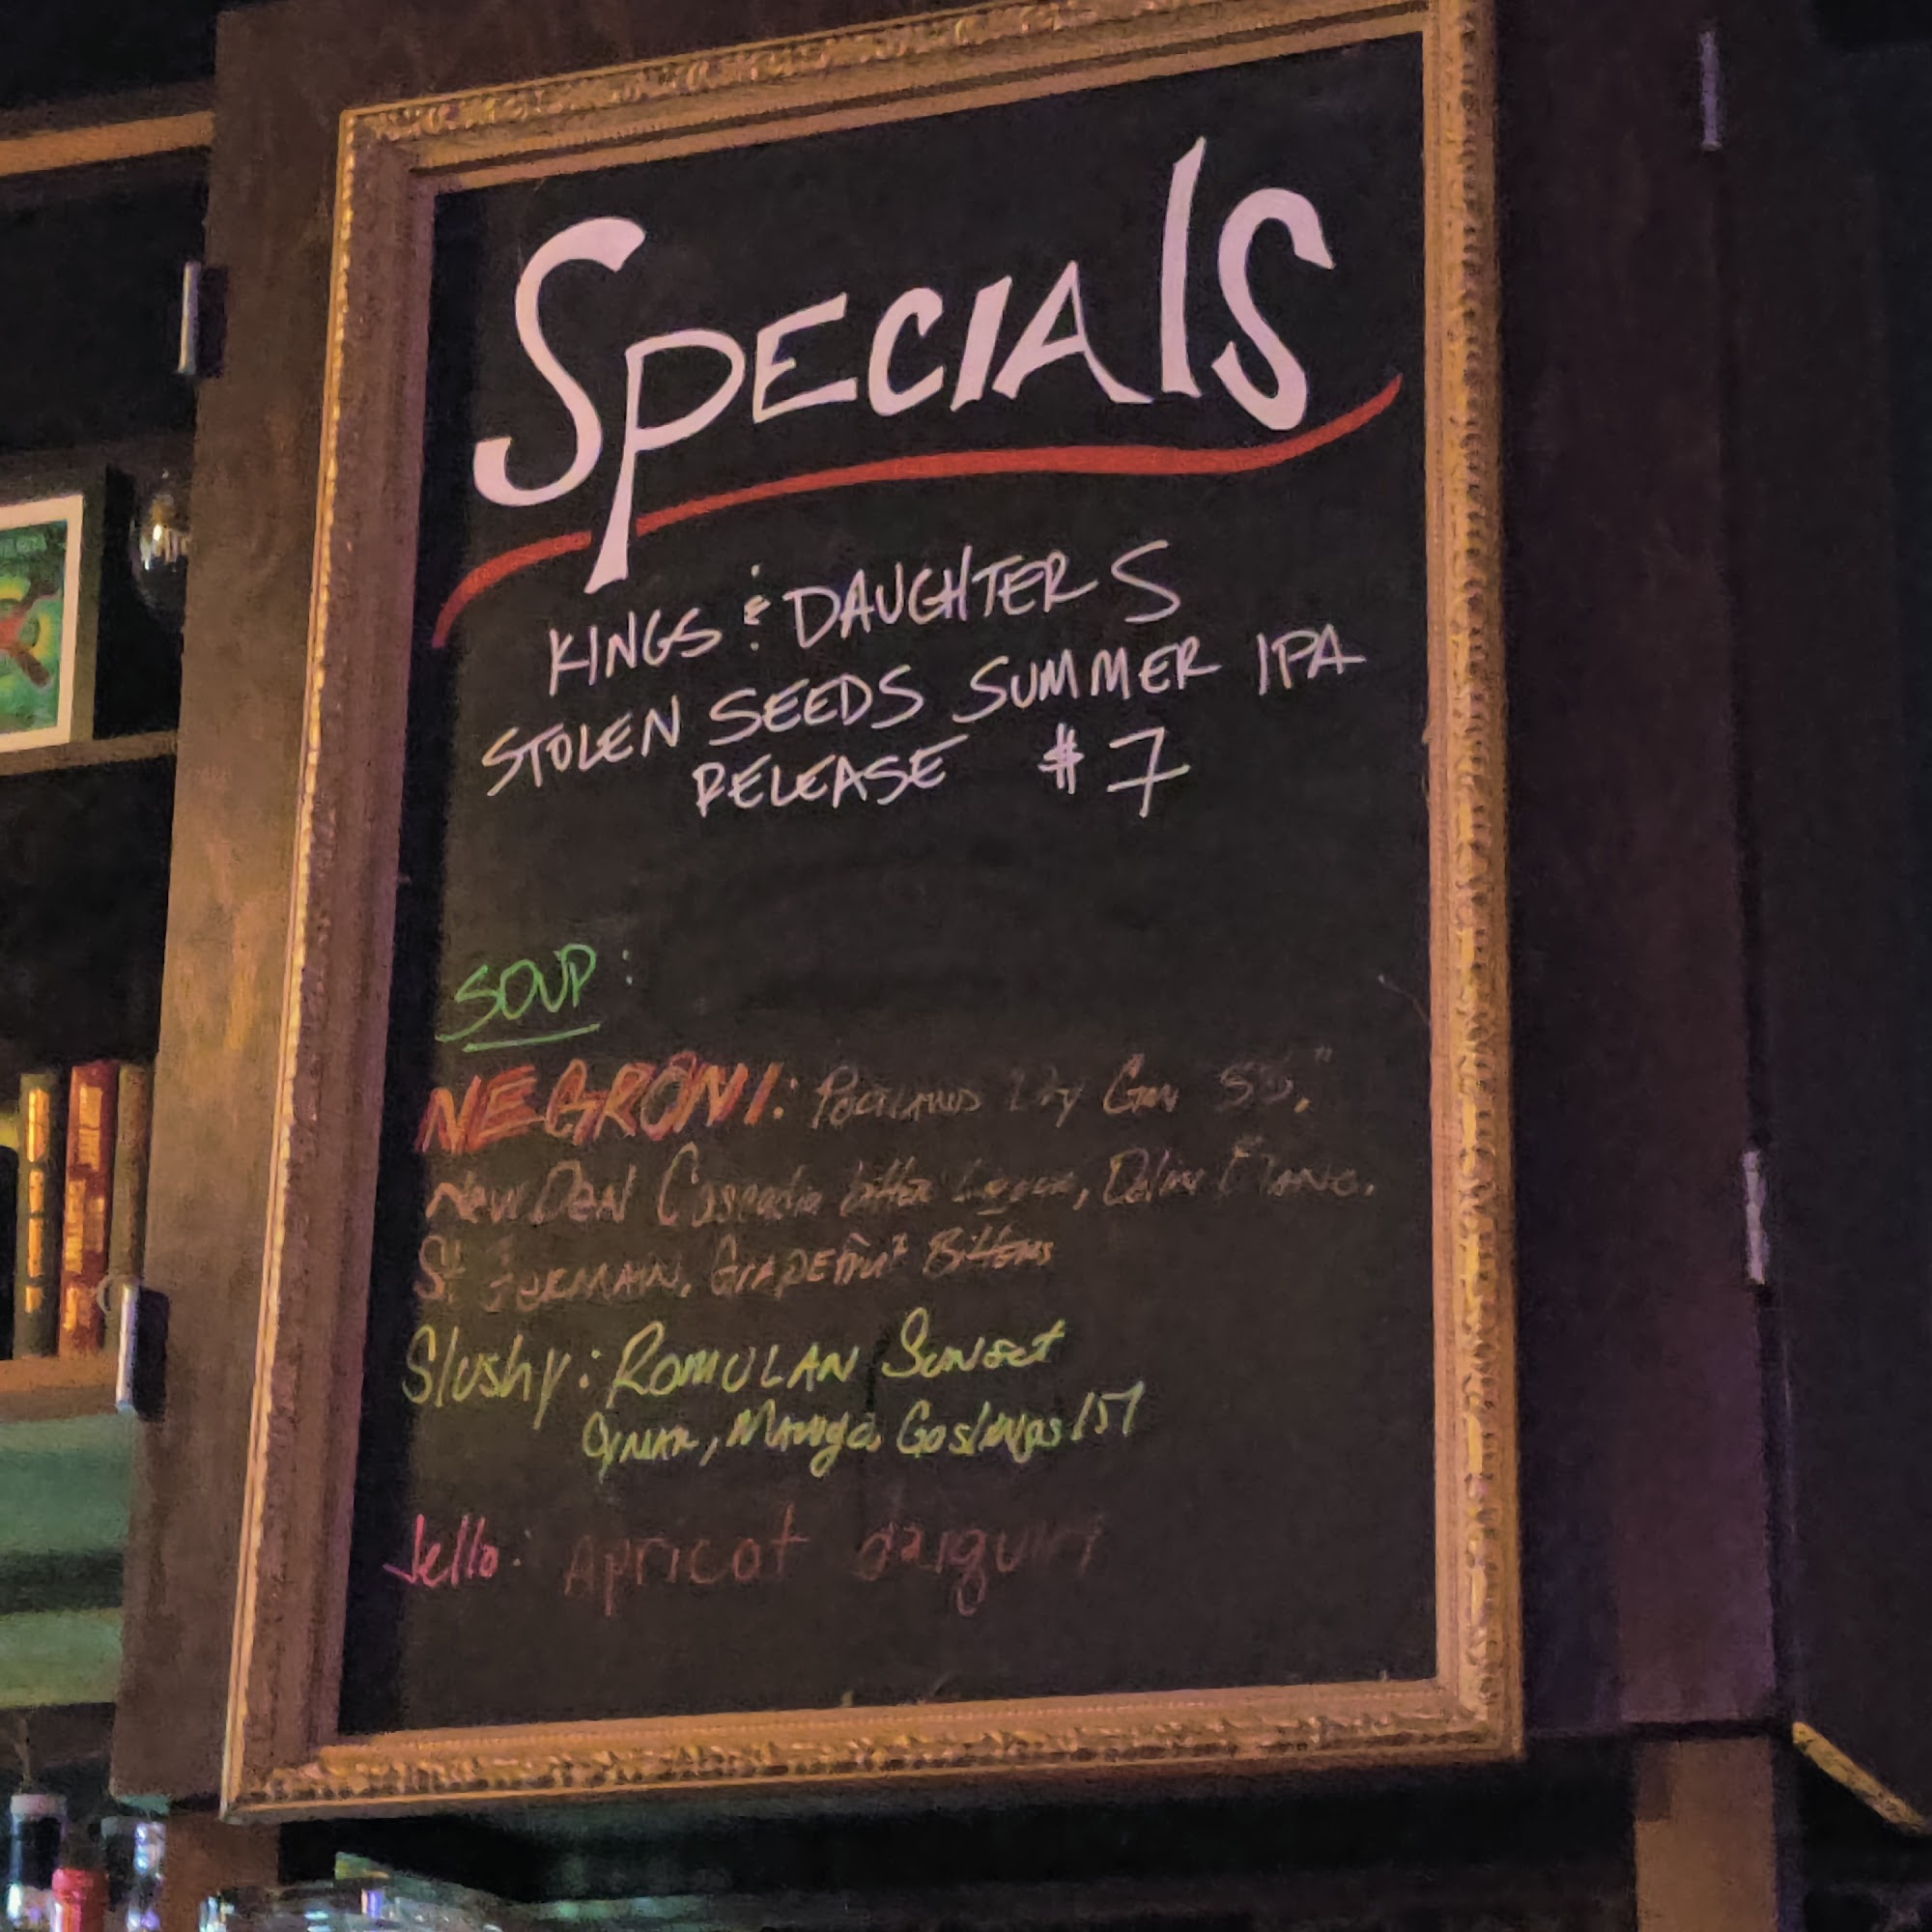 SPECIALS
KINGS & DAUGHTERS
STOLEN SEEDS SUMMER IPA
RELEASE $7
SOUP:
NEGRONI: Portland Dry Gin
New Deal Cascadia bitter Liqueur, Dolin Blanc,
St Germain, Grapefruit Bitters
Slushy: ROMULAN Sunset
Cynar, Mango, Goslings 151
Jello: Apricot daiquiri